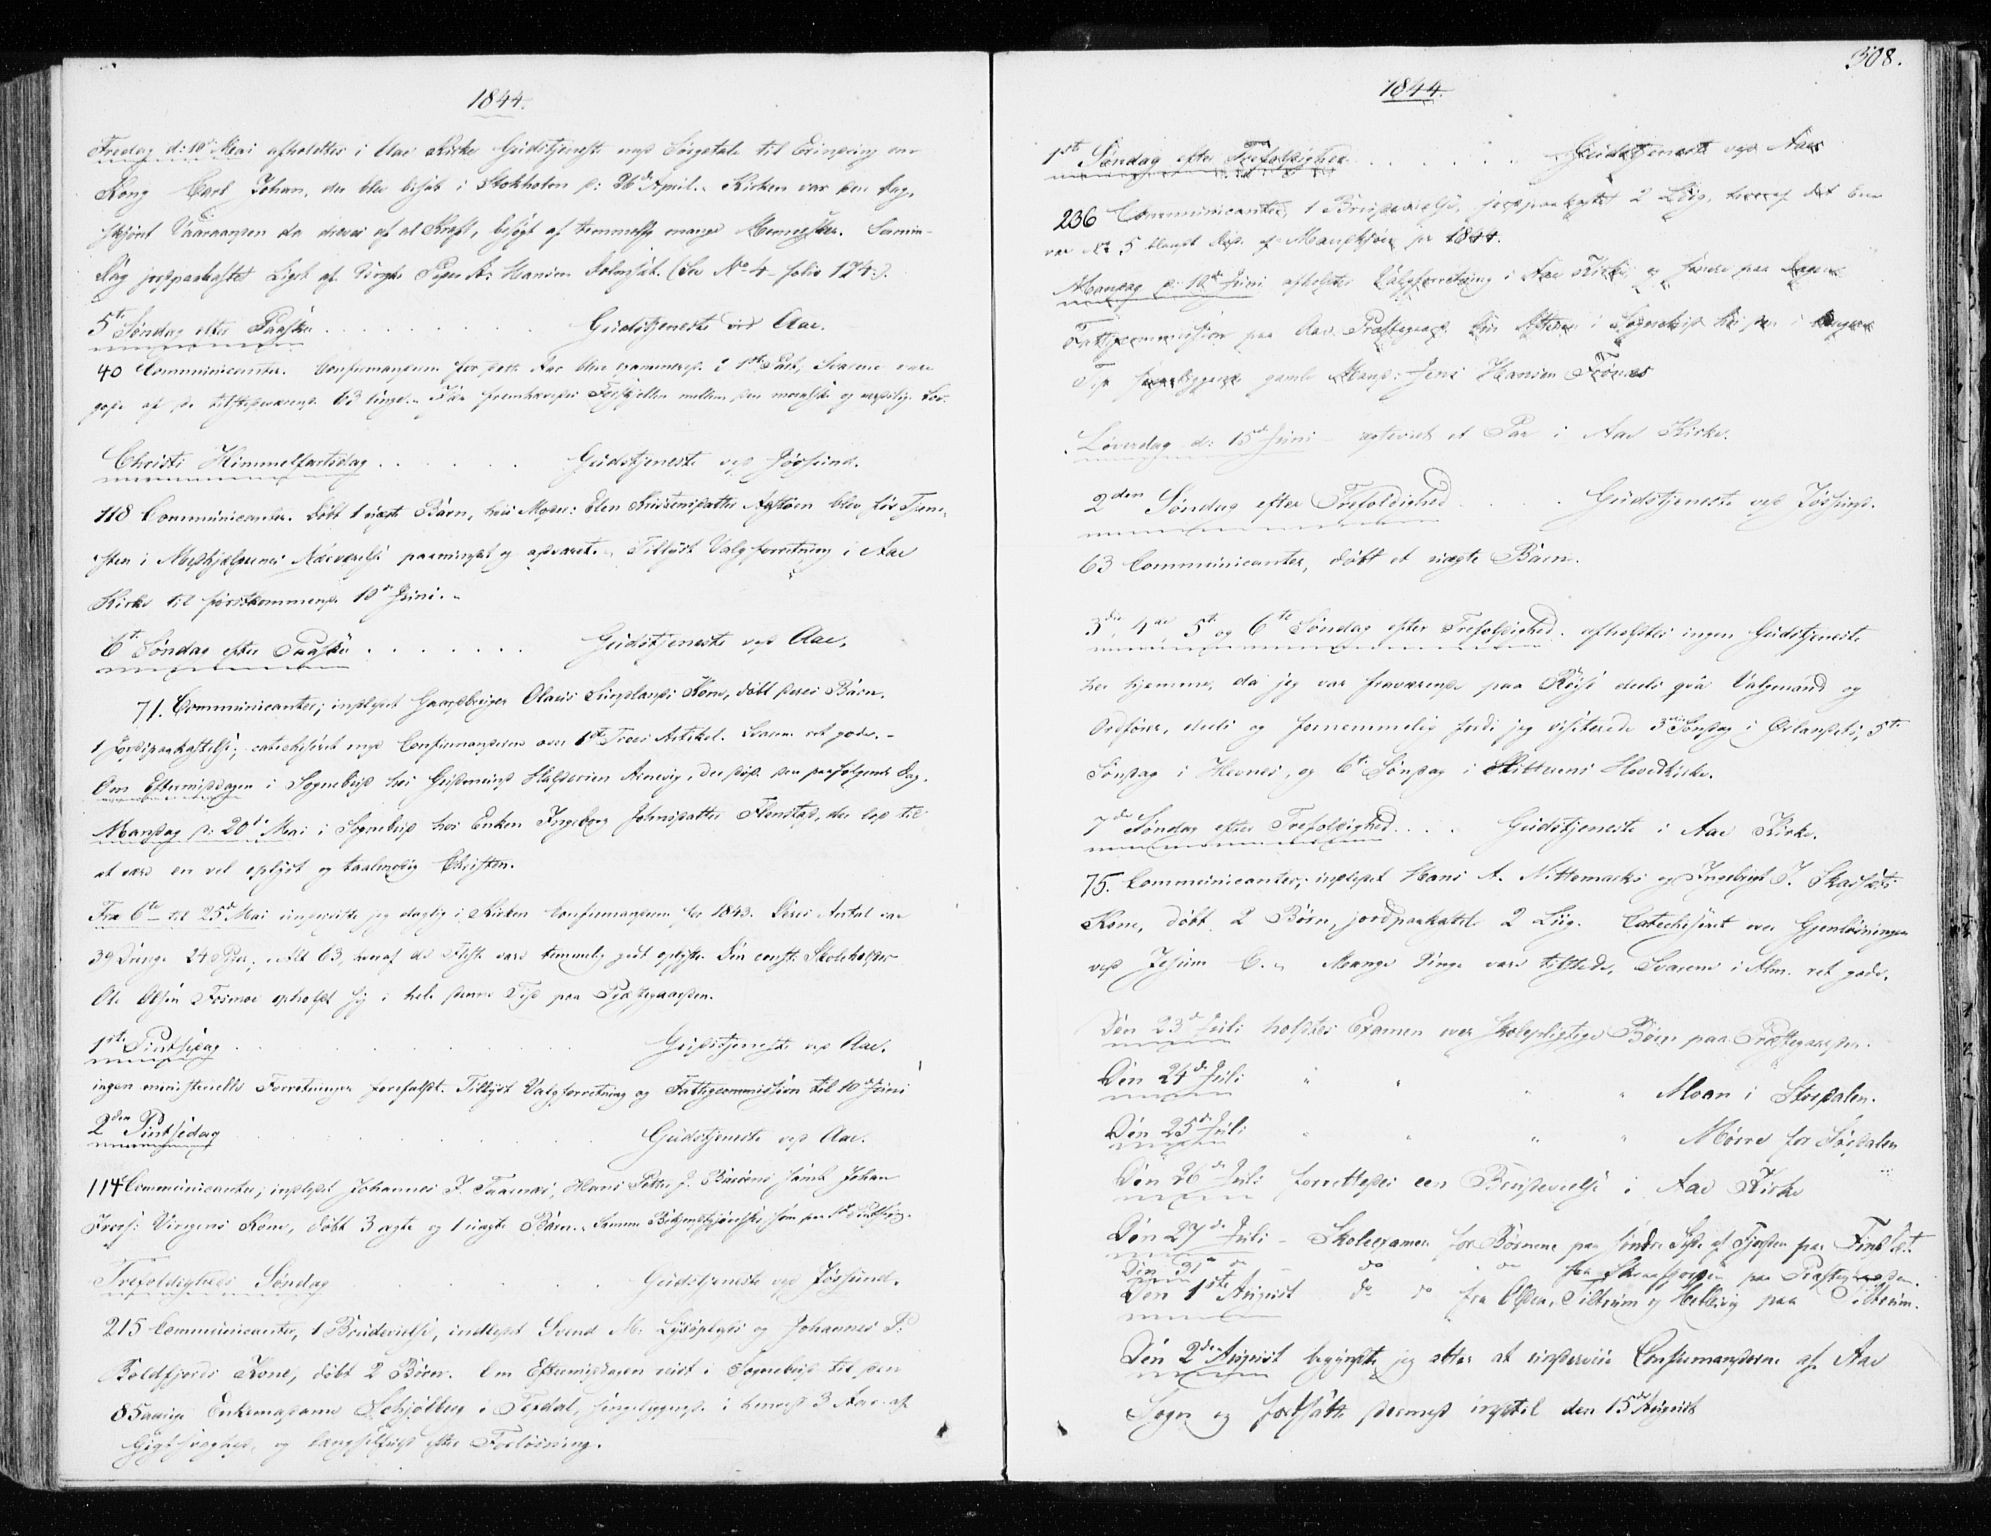 1844.
Fredag d: 10de Mai afholdtes i Aae Kirke Gudstjeneste med Sørgetale til Erindring om
Kong Carl Johan, der blev bisat i Stokholm d: 26de April. Kirken var den Dag,
skjønt Vaaraanden da dreves af al Kraft, besøgt af temmelig mange Mennesker. Samme
Dag jordpaakastet Liget af Pigen A: Hansen (See No 4 folio 174.).
5te Søndag efter Paaske . . . . . . . . . Gudstjeneste ved Aae.
40 Communicanter. Confirmanderne for dette Aar bleve examinerede i 1ste Part, Svarene vare
gode af de tilstedeværende 63 Unge.
Christi Himmelfartsdag . . . . . . Gudstjeneste ved Jøssund.
118 Communicanter. Døbt 1 uægte Barn, hvis Moder: Elen blev før Tjene-
sten i Medhjælpernes Nærværelse paamindet og advaret. Tillyst Valgforretning i Aae
Kirke til førstkommende 10de Juni.
6te Søndag efter Paaske . . . . . . . Gudstjeneste ved Aae.
71. Communicanter; indledet Gaardbruger Olaus Kone, døbt deres Barn,
1 Jordpaakastelse; catechiseret med Confirmanderne over 1ste Troes Artikel. Svarene ret gode.
Om Eftermiddagen i Sognebud hos Arnevig, der døde den paafølgende Dag.
Mandag d: 20de Mai i Sognebud hos Enken Ingeborg Johnsdatter Flenstad, der lod til
at være en vel oplyst og taalmodig Christen.
Fra 6te til 25de Mai underviste jeg daglig i Kirken Confirmanderne for 1843. Deres Antal var
39 Drenge 24 Piger, Alt 63, hvoraf de Fleste vare temmelig godt oplyste. Den const. Skoleholder
Ole Olsen opholdt sig i hele denne Tid paa Præstegaarden.
1ste Pintsedag . . . . . . . . . Gudstjeneste ved Aae.
ingen ministerielle Forretninger forefaldt. Tillyst Valgforretning og Fattigcommission til 10de Juni
2den Pintsedag . . . . . . . . . Gudstjeneste ved Aae.
114 Communicanter; indledet Johannes J. Taarnæs, Hans Petter J. samt Johan
Kone, døbt 3 ægte og 1 uægte Børn. Samme som paa 1ste Pintsedag.
Trefoldigheds Søndag . . . . . . Gudstjeneste ved Jøssund.
215 Communicanter, 1 Brudevielse, indledet Svend M: Lysøysets og Johannes P:
Boldfjords Kone, døbt 2 Børn. Om Eftermiddagen reist i Sognebud til den
85aarige Enkemadame Schjølberg i Terdal, sengeliggende i henved 3 Aar af
Gigtsvaghed, og længselfuld efter Forløsning.
308.
1844.
1ste Søndag efter Trefoldighed . . . . . . . Gudstjeneste ved Aae
236 Communicanter, 1 Brudevielse, jordpaakastet 2 Liig, hvoraf det ene
var No 5 blandt døde af Mandkjøn for 1844.
Mandag d: 10de Juni afholdtes Valgforretning i Aae Kirke, og senere paa Dagen
Fattigcommission paa Aae Præstegaard. Om Aftenen i Sognebud hos den i længere
Tid gamle Mand: Jens Hansen
Løverdag d: 15de Juni copuleret et Par i Aae Kirke.
2den Søndag efter Trefoldighed . . . . Gudstjeneste ved Jøssund.
63 Communicanter, døbt et uægte Barn.
3die, 4de, 5te og 6te Søndag efter Trefoldighed afholdtes ingen Gudstjeneste
her hjemme, da jeg var fraværende paa Reise deels qva Valgmand og
Ordfører, deels og fornemmelig fordi jeg visiterede 3die Søndag i Ørlandet, 5te
Søndag i Hevnes, og 6te Søndag i Hitterens Hovedkirke.
7de Søndag efter Trefoldighed . . . . Gudstjeneste i Aae Kirke.
75. Communicanter, indledet Hans A. Nittamarks og Ingebrigt J.
Kone, døbt 2 Børn, jordpaakastet 2 Liig. Catechiseret over Gjenløsningen
ved Jesum C. Mange Unge vare tilstede, Svarene i Alm. ret gode.
Den 23de Juli holdtes Examen over skolepligtige Børn paa Præstegaarden.
Den 24de Juli " " " " Moan i Stordalen.
Den 25de Juli " " " " Mørre for Sørdalen
Den 26de Juli forrettedes een Brudevielse i Aae Kirke
Den 27de Juli - Skoleexamen for Børnene paa søndre Side af Fjorden paa
Den 31te do - do do fra paa Præstegaarden.
Den 1ste August do do fra Olden, Tiltrum og paa Tiltrum.
Den 2den August begyndte jeg atter at underviise Confirmanderne af Aae
Sogn og fortsatte dermed indtil den 15de August